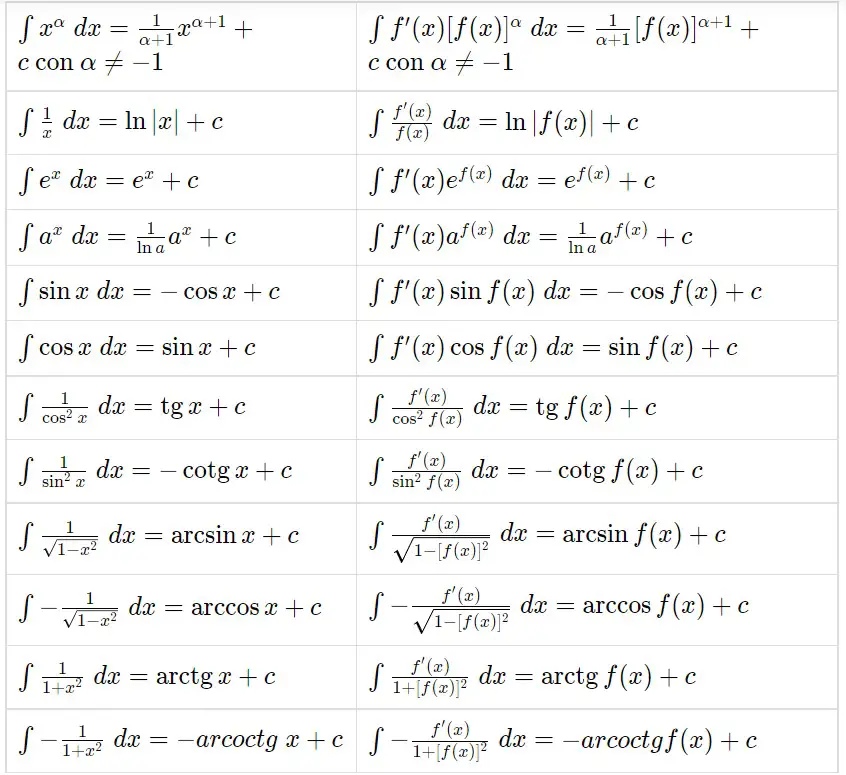 ∫ x^α dx = 1/(α+1) x^(α+1) +
c con α ≠ −1
∫ f′(x)[f(x)]^α dx = 1/(α+1) [f(x)]^(α+1) +
c con α ≠ −1
∫ 1/x dx = ln |x| + c
∫ f′(x)/f(x) dx = ln |f(x)| + c
∫ e^x dx = e^x + c
∫ f′(x)e^f(x) dx = e^f(x) + c
∫ a^x dx = 1/(ln a) a^x + c
∫ f′(x)a^f(x) dx = 1/(ln a) a^f(x) + c
∫ sin x dx = − cos x + c
∫ f′(x) sin f(x) dx = − cos f(x) + c
∫ cos x dx = sin x + c
∫ f′(x) cos f(x) dx = sin f(x) + c
∫ 1/(cos² x) dx = tg x + c
∫ f′(x)/(cos² f(x)) dx = tg f(x) + c
∫ 1/(sin² x) dx = − cotg x + c
∫ f′(x)/(sin² f(x)) dx = − cotg f(x) + c
∫ 1/√(1−x²) dx = arcsin x + c
∫ f′(x)/√(1−[f(x)]²) dx = arcsin f(x) + c
∫ − 1/√(1−x²) dx = arccos x + c
∫ − f′(x)/√(1−[f(x)]²) dx = arccos f(x) + c
∫ 1/(1+x²) dx = arctg x + c
∫ f′(x)/(1+[f(x)]²) dx = arctg f(x) + c
∫ − 1/(1+x²) dx = −arcoctg x + c
∫ − f′(x)/(1+[f(x)]²) dx = −arcoctgf(x) + c